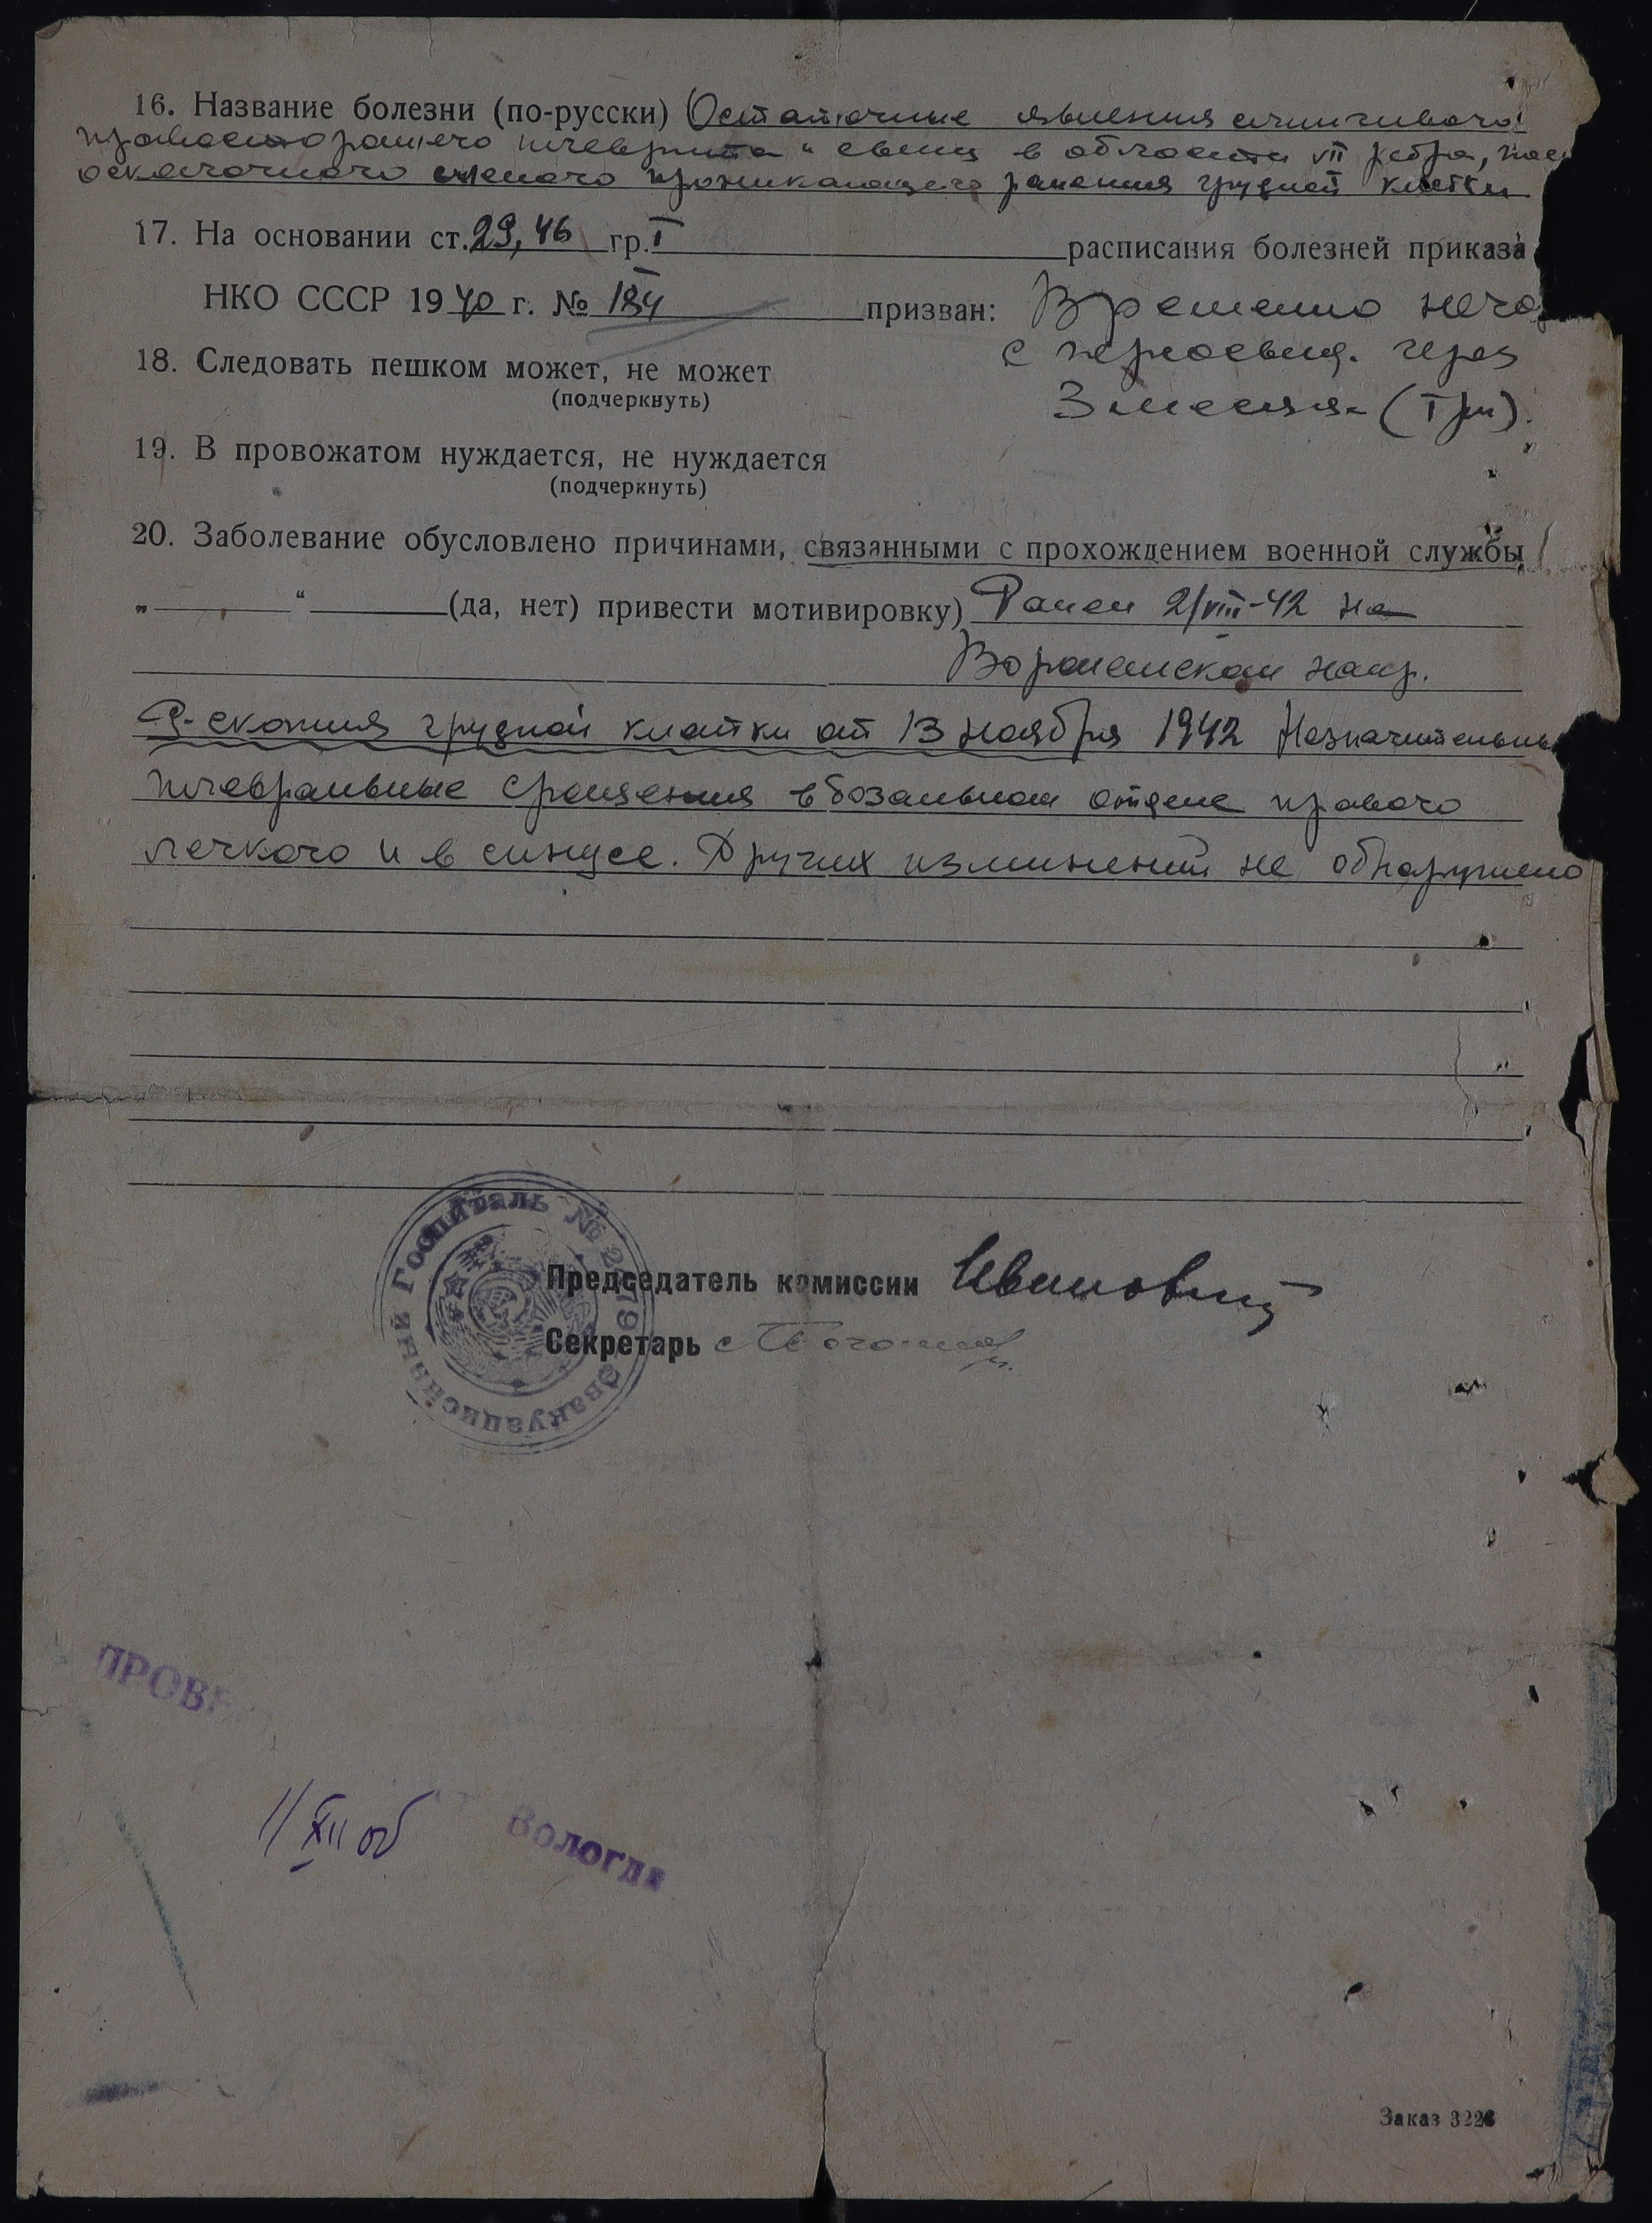 16. Название болезни (по-русски) Остаточные явления слипчивого
правостороннего плеврита и свищ в области VII ребра,
осколочного слепого проникающего ранения грудной клетки
17. На основании ст. 29, 46 гр. I расписания болезней приказа
НКО СССР 1940 г. № 184 призван: Временно него
с переосвид. через
18. Следовать пешком может, не может
(подчеркнуть)
3 месяца (Три).
19. В провожатом нуждается, не нуждается
(подчеркнуть)
20. Заболевание обусловлено причинами, связанными с прохождением военной службы,
„ “ (да, нет) привести мотивировку) Ранен 2/VIII-42 на
Воронежском напр.
R-скопия грудной клетки от 13 ноября 1942 Незначительны
плевральные сращения в базальном отделе правого
легкого и в синусе. Других изминений не обнаружено
Эвакуационный Госпиталь №
Председатель комиссии
Секретарь
ПРОВЕ
11/XII
Вологда
Заказ 3226